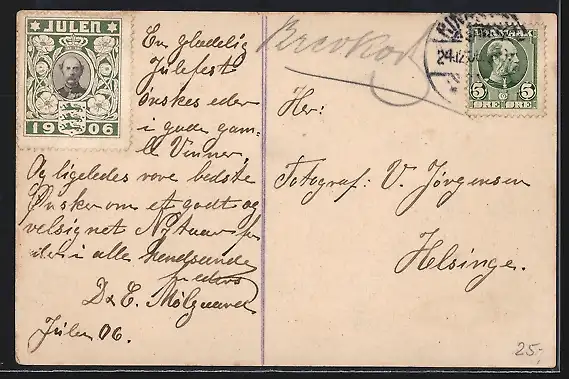 JULEN
1906
En glædelig
Julefest
ønskes eder
i gode gam-
le Venner,
Og ligeledes vore bedste
Ønsker om et godt og
velsignet Nytaar for
eder i alle henseende
D & C. Mølgaard
Julen 06.
Brevkort
DANMARK
24.12.06
5 5
ØRE ØRE
Hr:
Fotograf: V. Jørgensen
Helsinge.
25,-